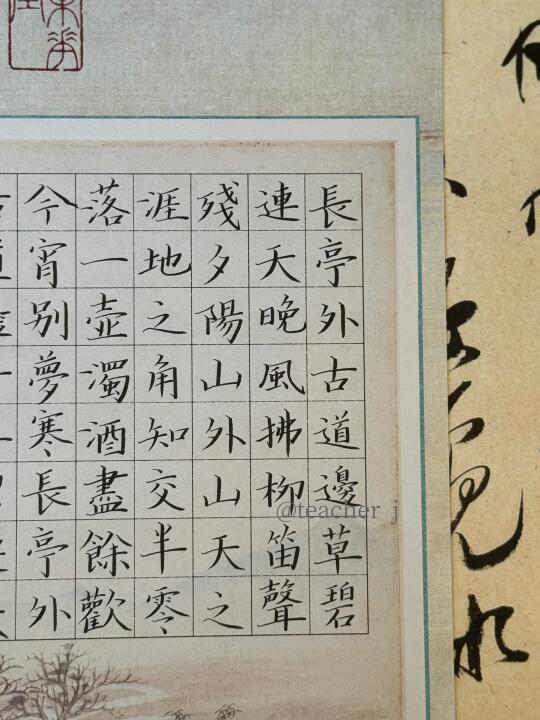 長亭外古道邊草碧
連天晚風拂柳笛聲
殘夕陽山外山天之
涯地之角知交半零
落一壺濁酒盡餘歡
今宵别夢寒長亭外
@teacher j